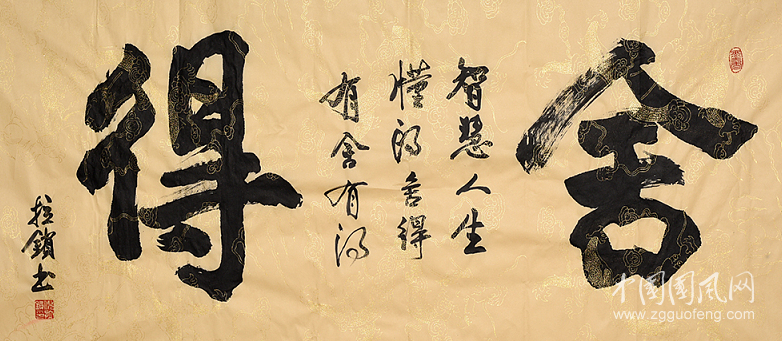 舍
智慧人生
懂得舍得
有舍有得
得
拉鎖书
中国国风网
www.zgguofeng.com